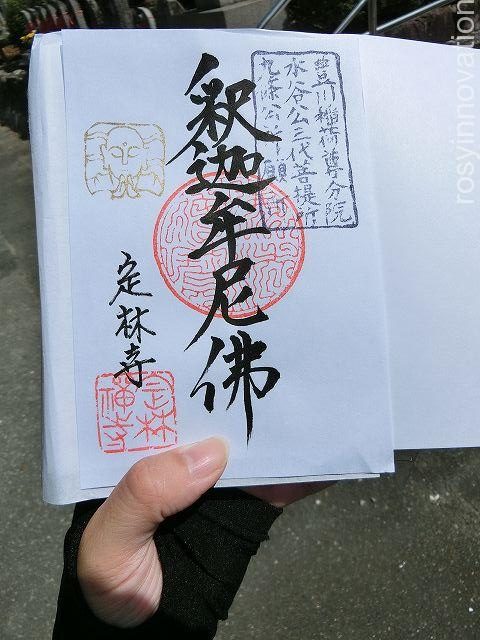 豊川稲荷尊分院
水谷公三代菩提所
釈迦牟尼佛
定林寺
定林
禅寺
rosyinnovation